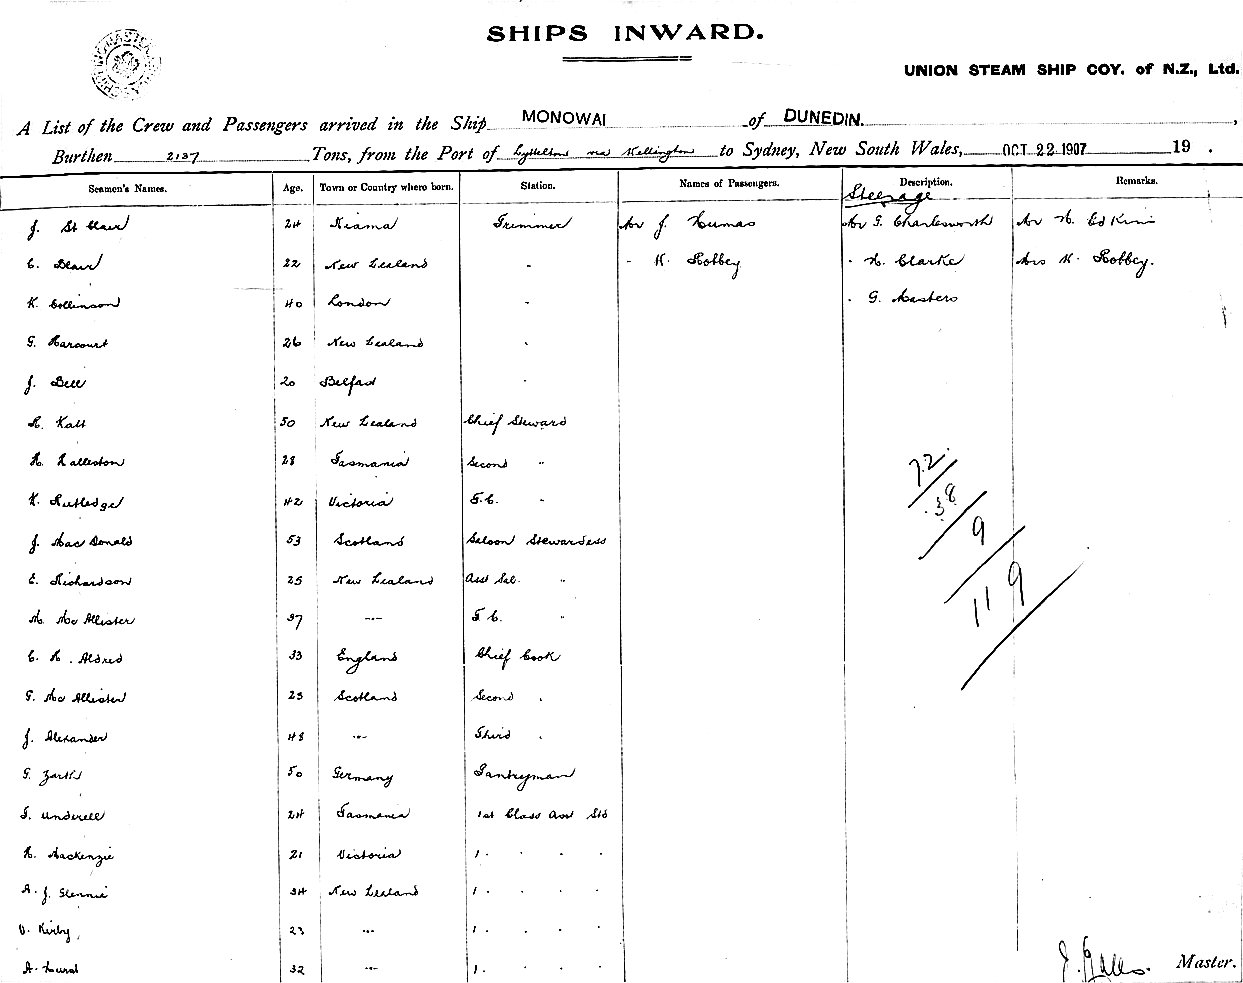 SHIPS INWARD.
UNION STEAM SHIP COY. of N.Z., Ltd.
A List of the Crew and Passengers arrived in the Ship MONOWAI of DUNEDIN.,
Burthen 2137 Tons, from the Port of Lyttelton via Wellington to Sydney, New South Wales, OCT 22 1907 19 .
Seamen's Names. Age. Town or Country where born. Station. Names of Passengers. Description. Remarks.
Steerage
J. St Clair 24 Kiama Trimmer Mr J. Mr G. Charlesworth Mr H.
C. Blair 22 New Zealand " - K. Robbey - H. Clarke Mrs K. Robbey.
K. Collinson 40 London " - G. Masters
G. Harcourt 26 New Zealand "
J. Bell 20 Belfast "
50 New Zealand Chief Steward
28 Tasmania Second "
K. Rutledge 42 Victoria "
J. MacDonald 53 Scotland Saloon Stewardess
E. Richardson 25 New Zealand Asst Sal. "
M. McAllister 37 -"- "
C. H. Aldred 33 England Chief Cook
G. McAllister 25 Scotland Second "
J. Alexander 48 -"- Third "
G. 50 Germany Pantryman
24 Tasmania 1st Class Asst Std
MacKenzie 21 Victoria 1 " " " "
A. J. 34 New Zealand 1 " " " "
Kirby 23 -"- 1 " " " "
A. 32 -"- 1 " " " "
72
38
9
119
Master.